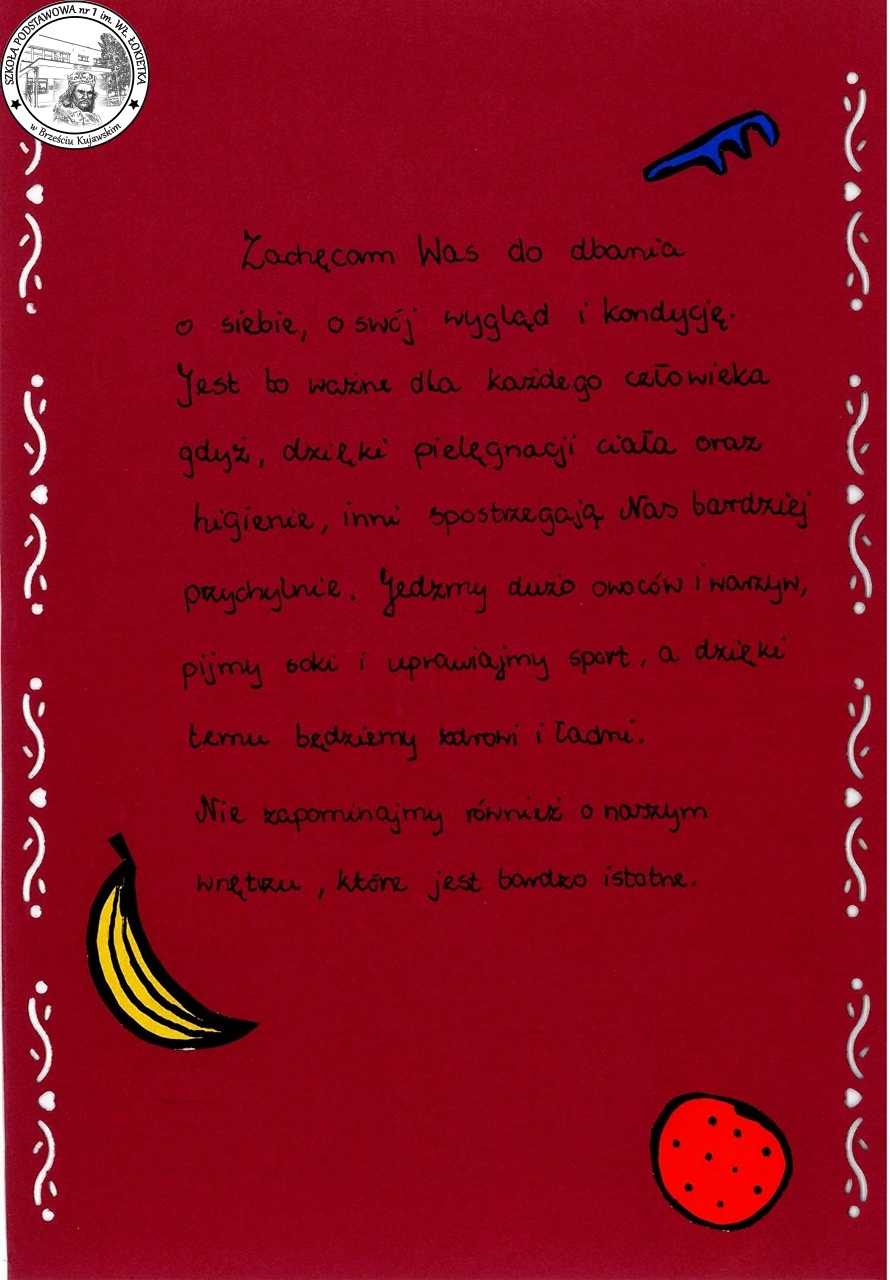 SZKOŁA PODSTAWOWA nr 1 im. WŁ. ŁOKIETKA
w Brześciu Kujawskim
Zachęcam Was do dbania
o siebie, o swój wygląd i kondycję.
Jest to ważne dla każdego człowieka
gdyż, dzięki pielęgnacji ciała oraz
higienie, inni spostrzegają Nas bardziej
przychylnie. Jedzmy dużo owoców i warzyw,
pijmy soki i uprawiajmy sport, a dzięki
temu będziemy zdrowi i ładni.
Nie zapominajmy również o naszym
wnętrzu, które jest bardzo istotne.